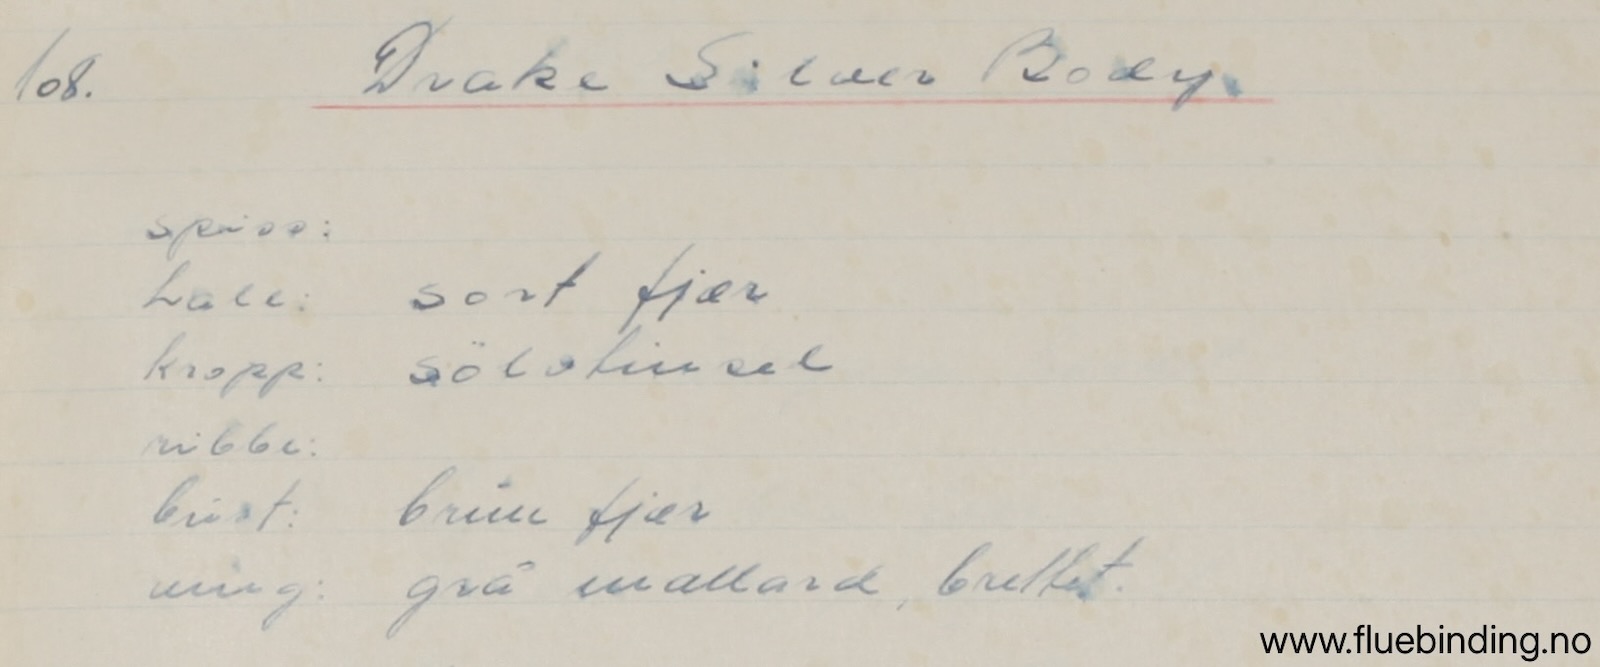 108. Drake Silver Body.
spiss:
hale: sort fjær
kropp: sölvtinsel
ribbe:
büst: brün fjær
wing: grå mallard, brettet.
www.fluebinding.no